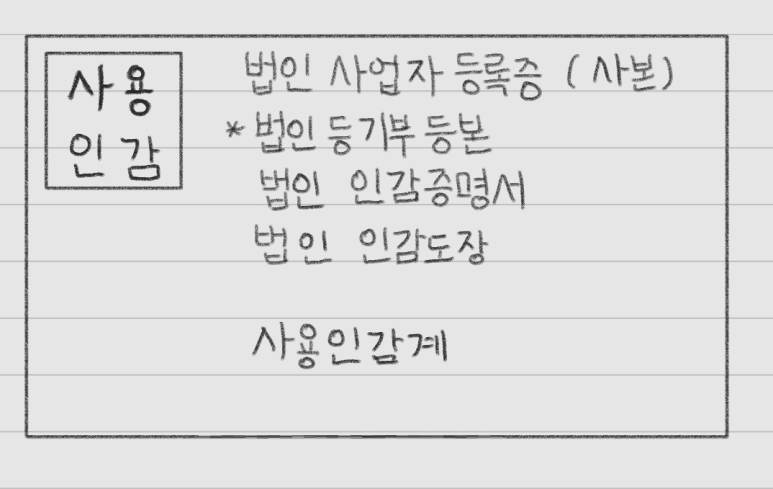 사용
인감
법인 사업자 등록증 (사본)
* 법인 등기부 등본
법인 인감증명서
법인 인감도장
사용인감계